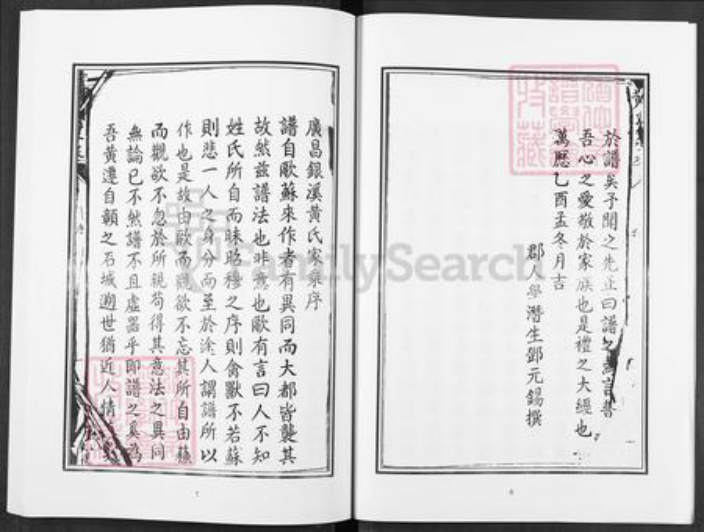 於譜矣予聞之先正曰譜之為言普
吾心之愛敬於家族也是禮之大經也
萬歷乙酉孟冬月吉
郡人學潛生鄧元錫撰
6
廣昌銀溪黃氏家乘序
譜自歐蘇來作者有異同而大都皆襲其
故然茲譜法也非意也歐有言曰人不知
姓氏所自而昧昭穆之序則禽獸不若蘇
則悲一人之身分而至於途人謂譜所以
作也是故由歐而觀欲不忘其所自由蘇
而觀欲不忽於所親苟得其意法之異同
無論已不然譜不且虛器乎即譜之奚為
吾黃遷自贛之石城遡世猶近人情
7
FamilySearch